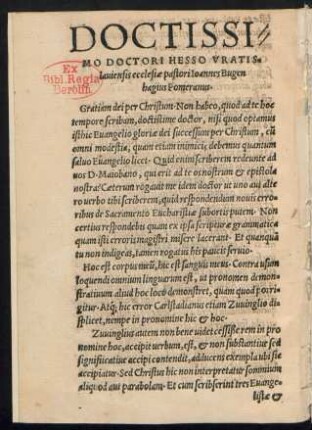 DOCTISSI-
MO DOCTORI HESSO VRATIS-
lauiensis ecclesiæ pastori Ioannes Bugen
hagius Pomeranus.
Ex
Bibl. Regia
Berolin.
Gratiam dei per Christum. Non habeo, quod ad te hoc
tempore scribam, doctissime doctor, nisi quod optamus
isthic Euangelio gloriæ dei successum per Christum, cũ
omni modestia, quam etiam inimici, debemus quantum
saluo Euangelio licet. Quid enim scriberem redeunte ad
uos D. Maiobano, qui erit ad te os nostrum & epistola
nostra? Cæterum rogauit me idem doctor ut uno aut alte
ro uerbo tibi scriberem, quid respondendum nouis erro
ribus de Sacramento Eucharistiæ subortis putem. Non
certius respondebis quam ex ipsa scripturæ grammatica
quam isti erroris magistri misere lacerant. Et quanquã
tu non indigeas, tamen rogatus his paucis seruio.
Hoc est corpus meũ, hic est sanguis meus. Contra usum
loquendi omnium linguarum est, ut pronomen demon
stratiuum aliud hoc loco demonstret, quàm quod porri
gitur. Atq; hic error Carlstadianus etiam Zwinglio di
splicet, nempe in pronomine hic & hoc.
Zwinglius autem non bene uidet cessisse rem in pro
nomine hoc, accepit uerbum, est, & non substantiue sed
significatiue accipi contendit, adducens exempla ubi sic
accipiatur. Sed Christus hic non interpretatur somnium
aliquod aut parabolam. Et cum scribserint tres Euange-
listæ &